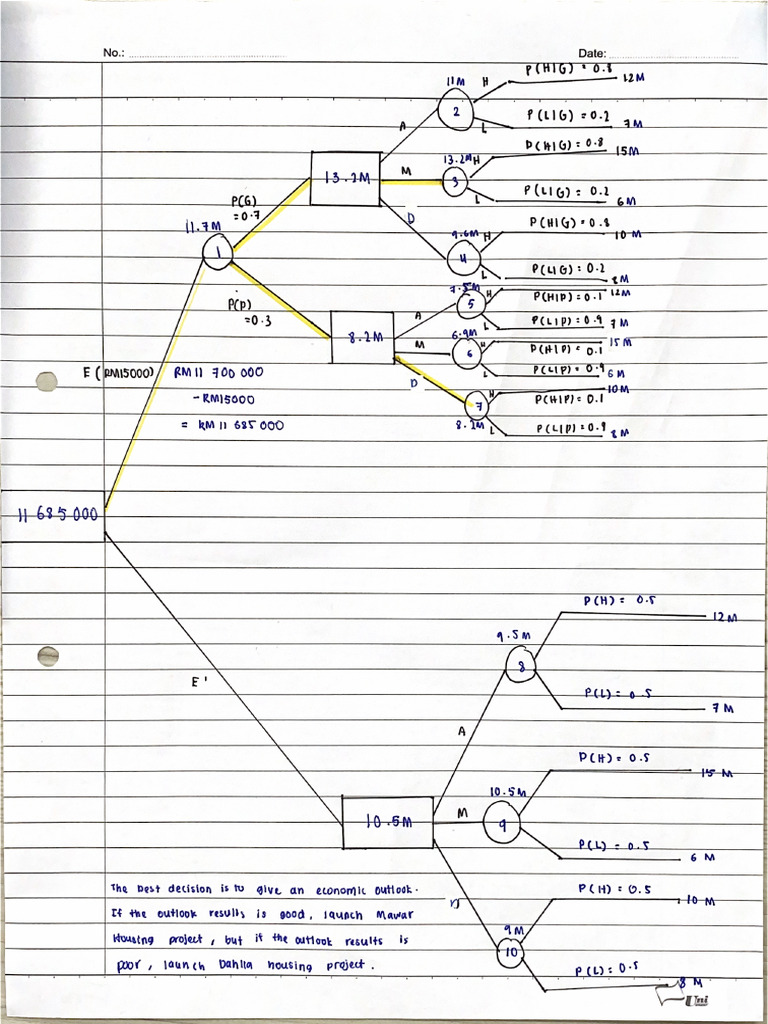 No.: Date:
P(H|G) = 0.8 12M
11M H
2
A L P(L|G) = 0.2 7M
P(H|G) = 0.8 15M
13.2M H
13.2M M 3
P(L|G) = 0.2 6M
L
P(G) = 0.7
D
P(H|G) = 0.8 10M
11.7M
9.6M H
1 4
L P(L|G) = 0.2 8M
7.5M H P(H|P) = 0.1 12M
5
P(P) = 0.3
A L P(L|P) = 0.9 7M
8.2M M 6.9M H P(H|P) = 0.1 15M
6
L P(L|P) = 0.9 6M
E (RM15000) RM 11 700 000
D H 10M
- RM15000
7 P(H|P) = 0.1
= RM 11 685 000
8.2M L P(L|P) = 0.9 8M
11 685 000
P(H) = 0.5 12M
9.5M
8
E'
P(L) = 0.5 7M
A
P(H) = 0.5 15M
10.5M
10.5M M 9
P(L) = 0.5 6M
The best decision is to give an economic outlook.
P(H) = 0.5 10M
D
If the outlook results is good, launch Mawar
9M
Housing project, but if the outlook results is
10
poor, launch Dahlia housing project.
P(L) = 0.5 8M